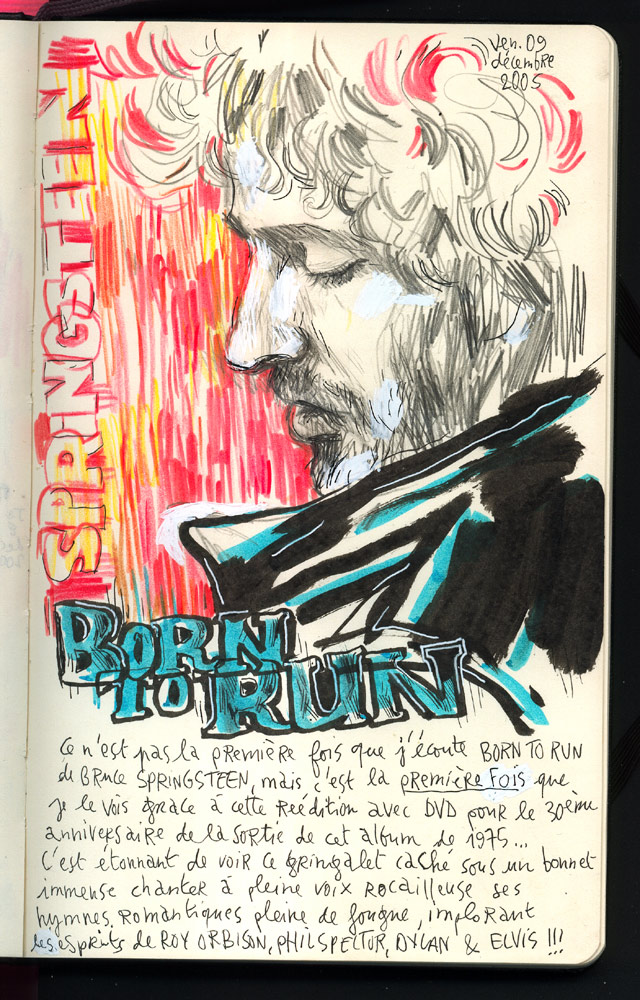 ven. 09
décembre
2005
SPRINGSTEEN
BORN
TO RUN
Ce n'est pas la première fois que j'écoute BORN TO RUN
de Bruce SPRINGSTEEN, mais c'est la première FOIS que
je le vois grace à cette réédition avec DVD pour le 30ème
anniversaire de la sortie de cet album de 1975...
C'est étonnant de voir ce gringalet caché sous un bonnet
immense chanter à pleine voix rocailleuse ses
hymnes romantiques pleine de fougue, implorant
les esprits de ROY ORBISON, PHIL SPECTOR, DYLAN & ELVIS !!!